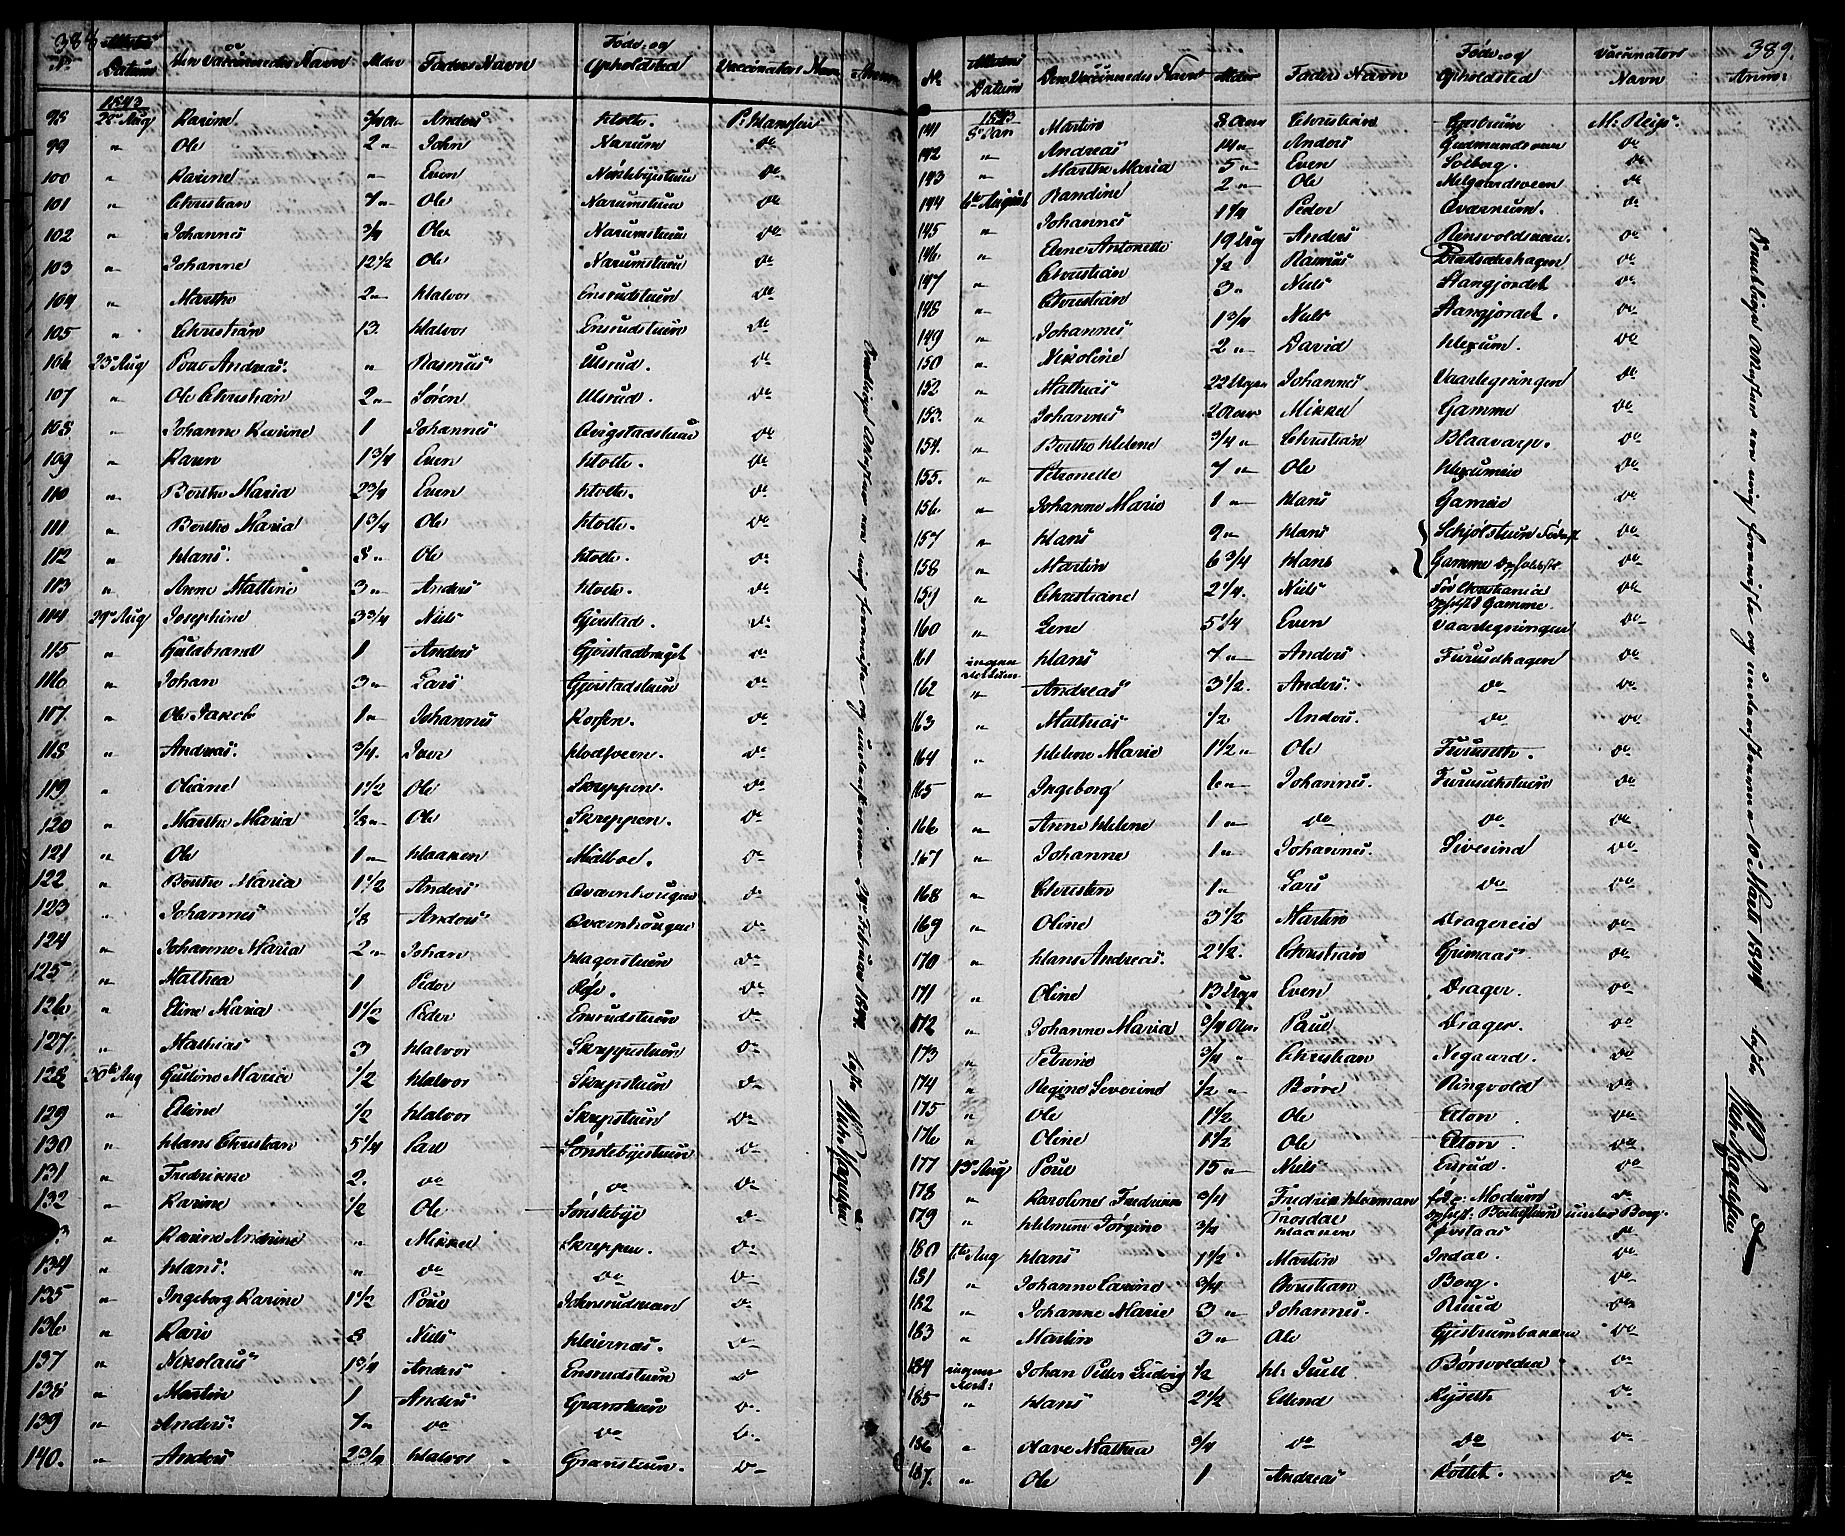 388
No | Datum | Den Vaccineredes Navn | Alder | Faders Navn | Føde- og Opholdsted | Vaccinators Navn | Anm:
1843
98 | 22de Aug | Karine | 3/4 Aar | Anders | Holte. | P. Hansen
99 | " | Ole | 2 " | John | Narum | do
100 | " | Karine | " | Even | Nøklebyestuen | do
101 | " | Christian | 7 " | Ole | Narumstuen | do
102 | " | Johannes | 3/4 | Ole | Narumstuen | do
103 | " | Johanne | 12 1/2 | Ole | Narumstuen | do
104 | " | Marthe | 2 " | Halvor | Ensrudstuen | do
105 | " | Christian | 13 | Halvor | Ensrudstuen | do
106 | 23de Aug | Poul Andreas. | " | Rasmus | Ulsrud. | do
107 | " | Ole Christian | 2 " | Sören | Ulsrud. | do
108 | " | Johanne Karine | 1 | Johannes | Qvigstadstuen | do
109 | " | Karen | 1 3/4 | Even | Holte. | do
110 | " | Berthe Maria | 2 3/4 | Even | Holte. | do
111 | " | Berthe Maria | 1 3/4 | Ole | Holte. | do
112 | " | Hans. | 8 " | Ole | Holte. | do
113 | " | Anne Mathine | 3 " | Anders | Holte. | do
114 | 29de Aug | Josephine | 3 3/4 | Niels | Gjørstad. | do
115 | " | Gulabrand | 1 | Anders | Gjørstadbraget | do
116 | " | Johan | 3 " | Lars | Gjørstadstuen | do
117. | " | Ole Jakob | 1 " | Johannes | Korsen. | do
118 | " | Andreas. | 3/4. | Iver | Hodsveen. | do
119 | " | Oliane | 1 1/2 | Ole | Skreppen. | do
120 | " | Marthe Maria | 1/2 " | Ole | Skreppen. | do
121 | " | Ole | 1 " | Haaken | Mælboe. | do
122 | " | Berthe Maria | 1 1/2 | Anders | Qværnhougen | do
123 | " | Johannes | 1/8 | Anders | Qværnhougen | do
124 | " | Johanne Maria | 2 " | Johan | Hagerstuen | do
125 | " | Mathea | 1 | Peder | Røse. | do
126 | " | Eline Maria | 1 1/2 | Peder | Ensrudstuen | do
127 | " | Mathias | 3 | Halvor | Skreppestuen | do
128 | 30te Aug | Gulline Marie | 1/2 | Halvor | Skrepstuen | do
129 | " | Eline | 1/2 | Halvor | Skrepstuen | do
130 | " | Hans Christian | 5 1/4 | Paul | Sønstebyestuen | do
131 | " | Fredrikke | 2. | do | do | do
132 | " | Karine | 1/2 | Ole | Sønstebye | do
3 | " | Karine Andrine | " | Mikkel | Skreppen. | do
134 | " | Hans. | " | do | do | do
135 | " | Ingeborg Karine | 1 1/2 | Poul | Johnsrudmæn | do
136 | " | Kari | 8 | Niels | Heiernæs. | do
137 | " | Nikolaus | 1 3/4 | Anders | Ensrudstuen | do
138 | " | Martin | 1 | Anders | Granstuen | do
139 | " | Anders. | 7 " | do | do | do
140. | " | Anders | 2 3/4 | Halvor | Granstuen. | do
Februar 1844
389.
No | Datum | Den Vaccineredes Navn | Alder | Faders Navn | Føde- og Opholdsted | Vaccinators Navn | Anm:
1843
141 | 8de Jan | Martin | 8 Aar | Christian | Gjestrum | M. Reiss.
142 | " | Andreas | 14 " | Anders | Gudmundsveen | do
143 | " | Marthe Maria | 5 " | Even | Solberg. | do
144 | 6te August | Randine | 2 " | Ole | Melgaardsveen | do
145 | " | Johannes | 1 1/4 | Peder | Qværnum. | do
146. | " | Elene Antonette | 19 Uger | Anders | Rensvoldsveen. | do
147 | " | Christian | 1/2 | Rasmus | hagen | do
148 | " | Christian | 3 " | Niels | Stangjordet | do
149 | " | Johannes | 1 3/4 | Niels | Stangjordet. | do
150 | " | Nikoline | 2 " | David | Hexum. | do
152 | " | Mathias | 22 Uger | Johannes | Vaarlegningen | do
153. | " | Johannes | 2 Aar | Mikkel | Gamme | do
154. | " | Berthe Helene | 3/4 " | Christian | Blaavarp. | do
155. | " | Petronelle | 7 " | Ole | Hexumeie | do
156. | " | Johanne Marie | 1 " | Hans | Gameie | do
157 | " | Hans | 2 " | Hans | Schjolstuen Fødest | do
158 | " | Martin | 6 3/4 | Hans | Gamme Opholdst | do
159 | " | Christiane | 2 1/4. | Niels | Fød Christiania opholdst Gamme. | do
160 | " | Lene | 5 1/4 | Even | Vaarlegningen | do
161 | ingen datum | Hans | 7 " | Anders | Furusethagen | do
162 | " | Andreas | 3 1/2. | Anders. | do | do
163 | " | Mathias | 1/2 | Anders. | do | do
164 | " | Helene Marie | 1 1/2 " | Ole | Furuseth. | do
165 | " | Ingeborg | 1 " | Johannes. | Furusethstuen | do
166 | " | Anne Helene | 1 " | do | do | do
167 | " | Johanne | 1 " | Johannes. | Sivesind | do
168 | " | Christen | 1 " | Lars | do | do
169 | " | Oline | 3 1/2 | Martin | Dragereie | do
170 | " | Hans Andreas. | 2 1/2. | Christian | Grimaas | do
171 | " | Oline | 13 Uger | Even | Drager. | do
172 | " | Johanne Maria | 3/4 Aar | Paul | Drager. | do
173 | " | Petrine | 3/4 " | Christian | Negaard. | do
174 | " | Regine Severine | 1/2 " | Börre | Ringvold | do
175 | " | Ole | 1 1/2 | Ole | Elton. | do
176 | " | Oline | 1 1/2 | Ole | Elton. | do
177 | 13de Aug | Poul | 15 " | Niels | Ensrud. | do
178 | " | Karoline Fredrikke | 3/4 | Fredrik Hermann Frosdal | født: Modum opholdst: Borkestuen under Borg. | do
179 | " | Helmine Jørgine | 3/4 | Haaken | Øistaas | do
180 | 1te Aug | Hans | 1 1/2 | Martin | Indal. | do
181 | " | Johanne Carine | 3/4 | Christian | Borg. | do
182 | " | Johanne Marie | 3 " | Johannes. | Ruud | do
183 | " | Martin | 3 " | Ole | Gjestrumbakken | do
184 | ingen dat: | Johan Peder Ludvig | 1/2 | H: Juell | Børsvolden | do
185 | " | Hans | 2 1/2 | Ellend | Ryseth | do
186 | " | Mathea | 3/4 | do | do | do
187. | " | Ole | 1 | Andreas | Røttet. | do
10 Marts 1844